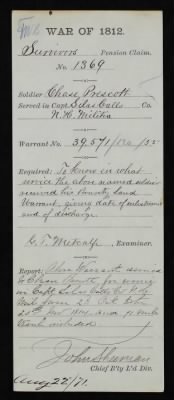 WAR OF 1812.
Survivors Pension Claim.
No. 1369
Soldier Chase Prescott
Served in Capt. Silas Calls Co.
N.H. Militia
Warrant No. 39,571/160/55
Required: To know in what
service the above named soldier
received his Bounty Land
Warrant, giving date of enlistment
and of discharge.
G.T. Metcalf, Examiner.
Report: Above Warrant issued
to Chase for service
in Capt Silas Calls Co N.H.
Mil from 2d Oct to
1814 and
included
John Sherman
Chief B'ty L'd Div.
Aug 22/71.